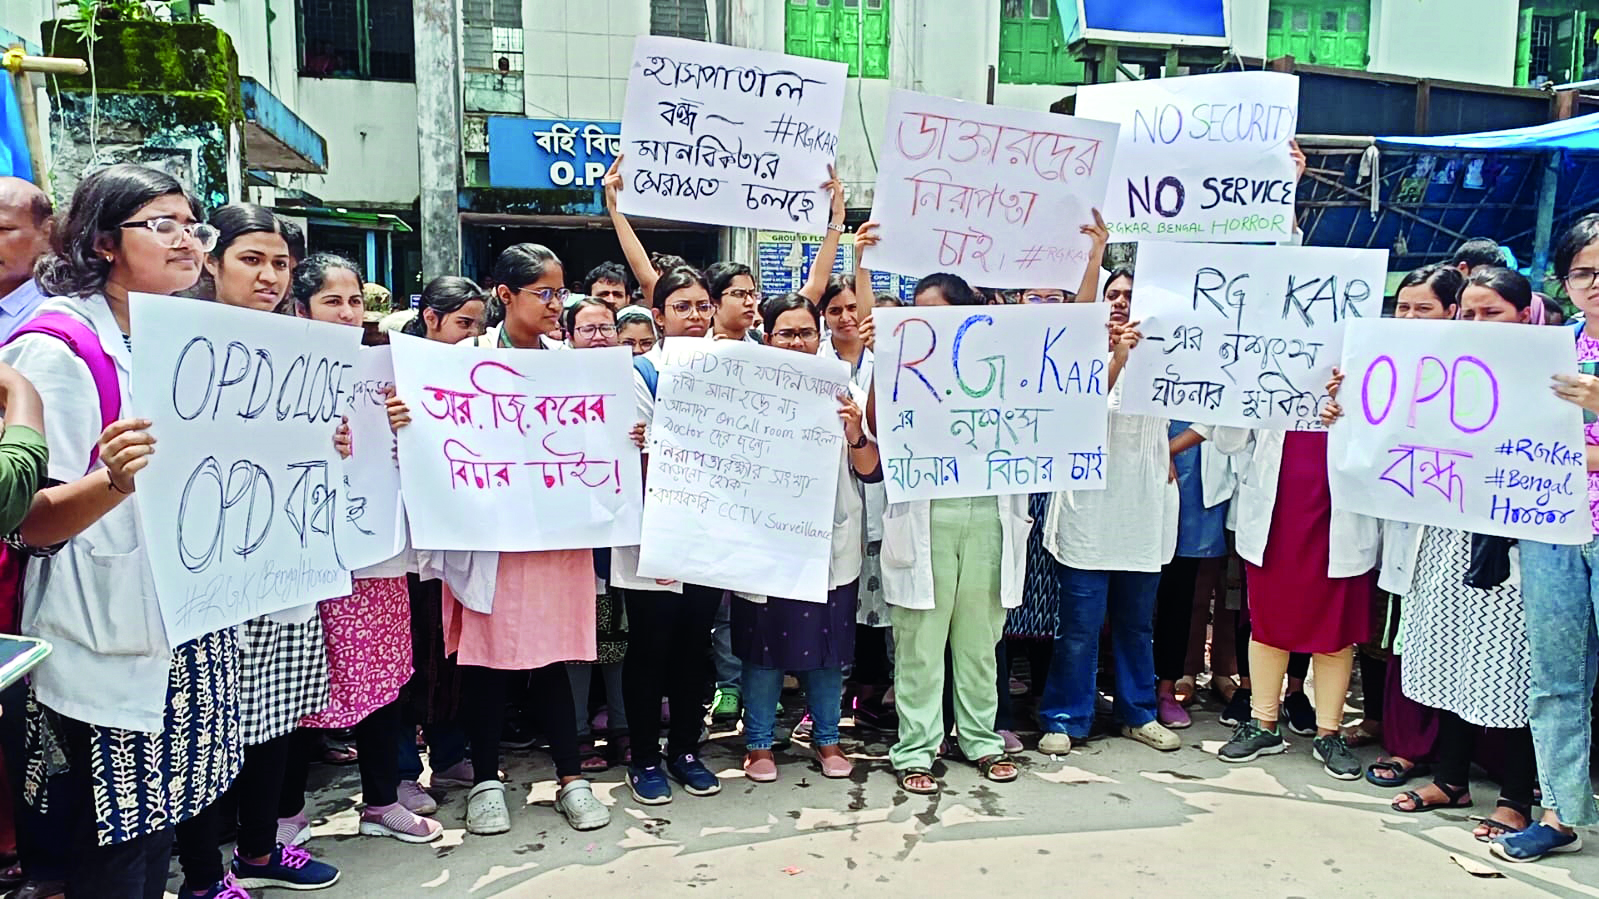 হাসপাতাল
বন্ধ ~
#RGKAR
মানবিকতার
মেরামত চলছে
ডাক্তারদের
নিরাপত্তা
চাই। #RGKAR
NO SECURITY
NO SERVICE
RGKAR BENGAL HORROR
বর্হি
O.P.
GROUND FLO
OPD
RG KAR
-এর নৃশংস
ঘটনার সু-বিচার
OPD CLOSE
OPD বন্ধ
#RGK(Bengal Horror)
আর.জি.করের
বিচার চাই!
OPD বন্ধ যতদিন আমাদের
দাবী মানা হচ্ছে না;
• আলাদা On Call room মহিলা
Doctor দের জন্যে।
• নিরাপত্তারক্ষীর সংখ্যা
বাড়ানো হোক।
• কার্যকরি CCTV Surveillance
R.G. KAR
এর নৃশংস
ঘটনার বিচার চাই
OPD
বন্ধ
#RGKAR
#Bengal
Horror